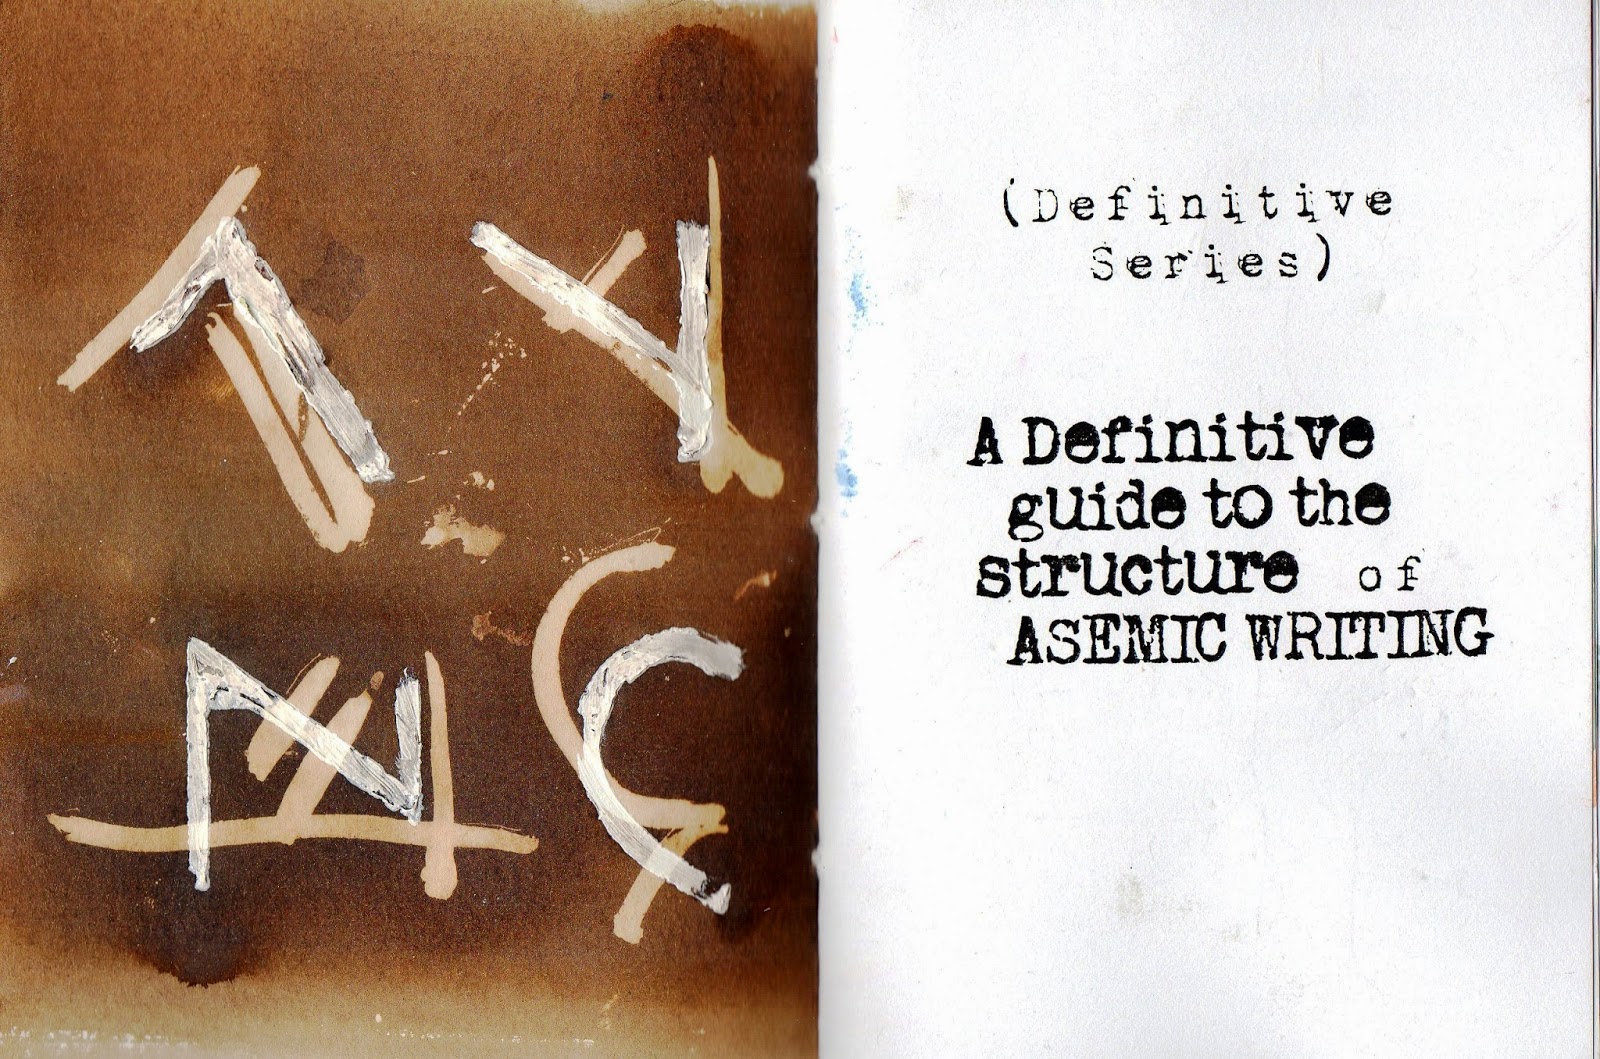 (Definitive
Series)
A Definitive
guide to the
structure of
ASEMIC WRITING